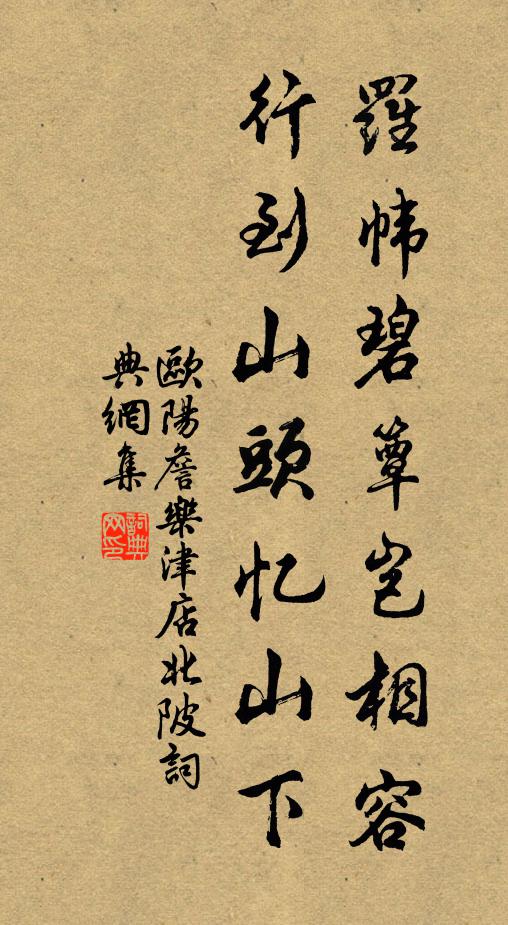 羅帏碧簟岂相容
行到山頭忆山下
歐陽詹樂津店北陂詞
典網集
詞典网印